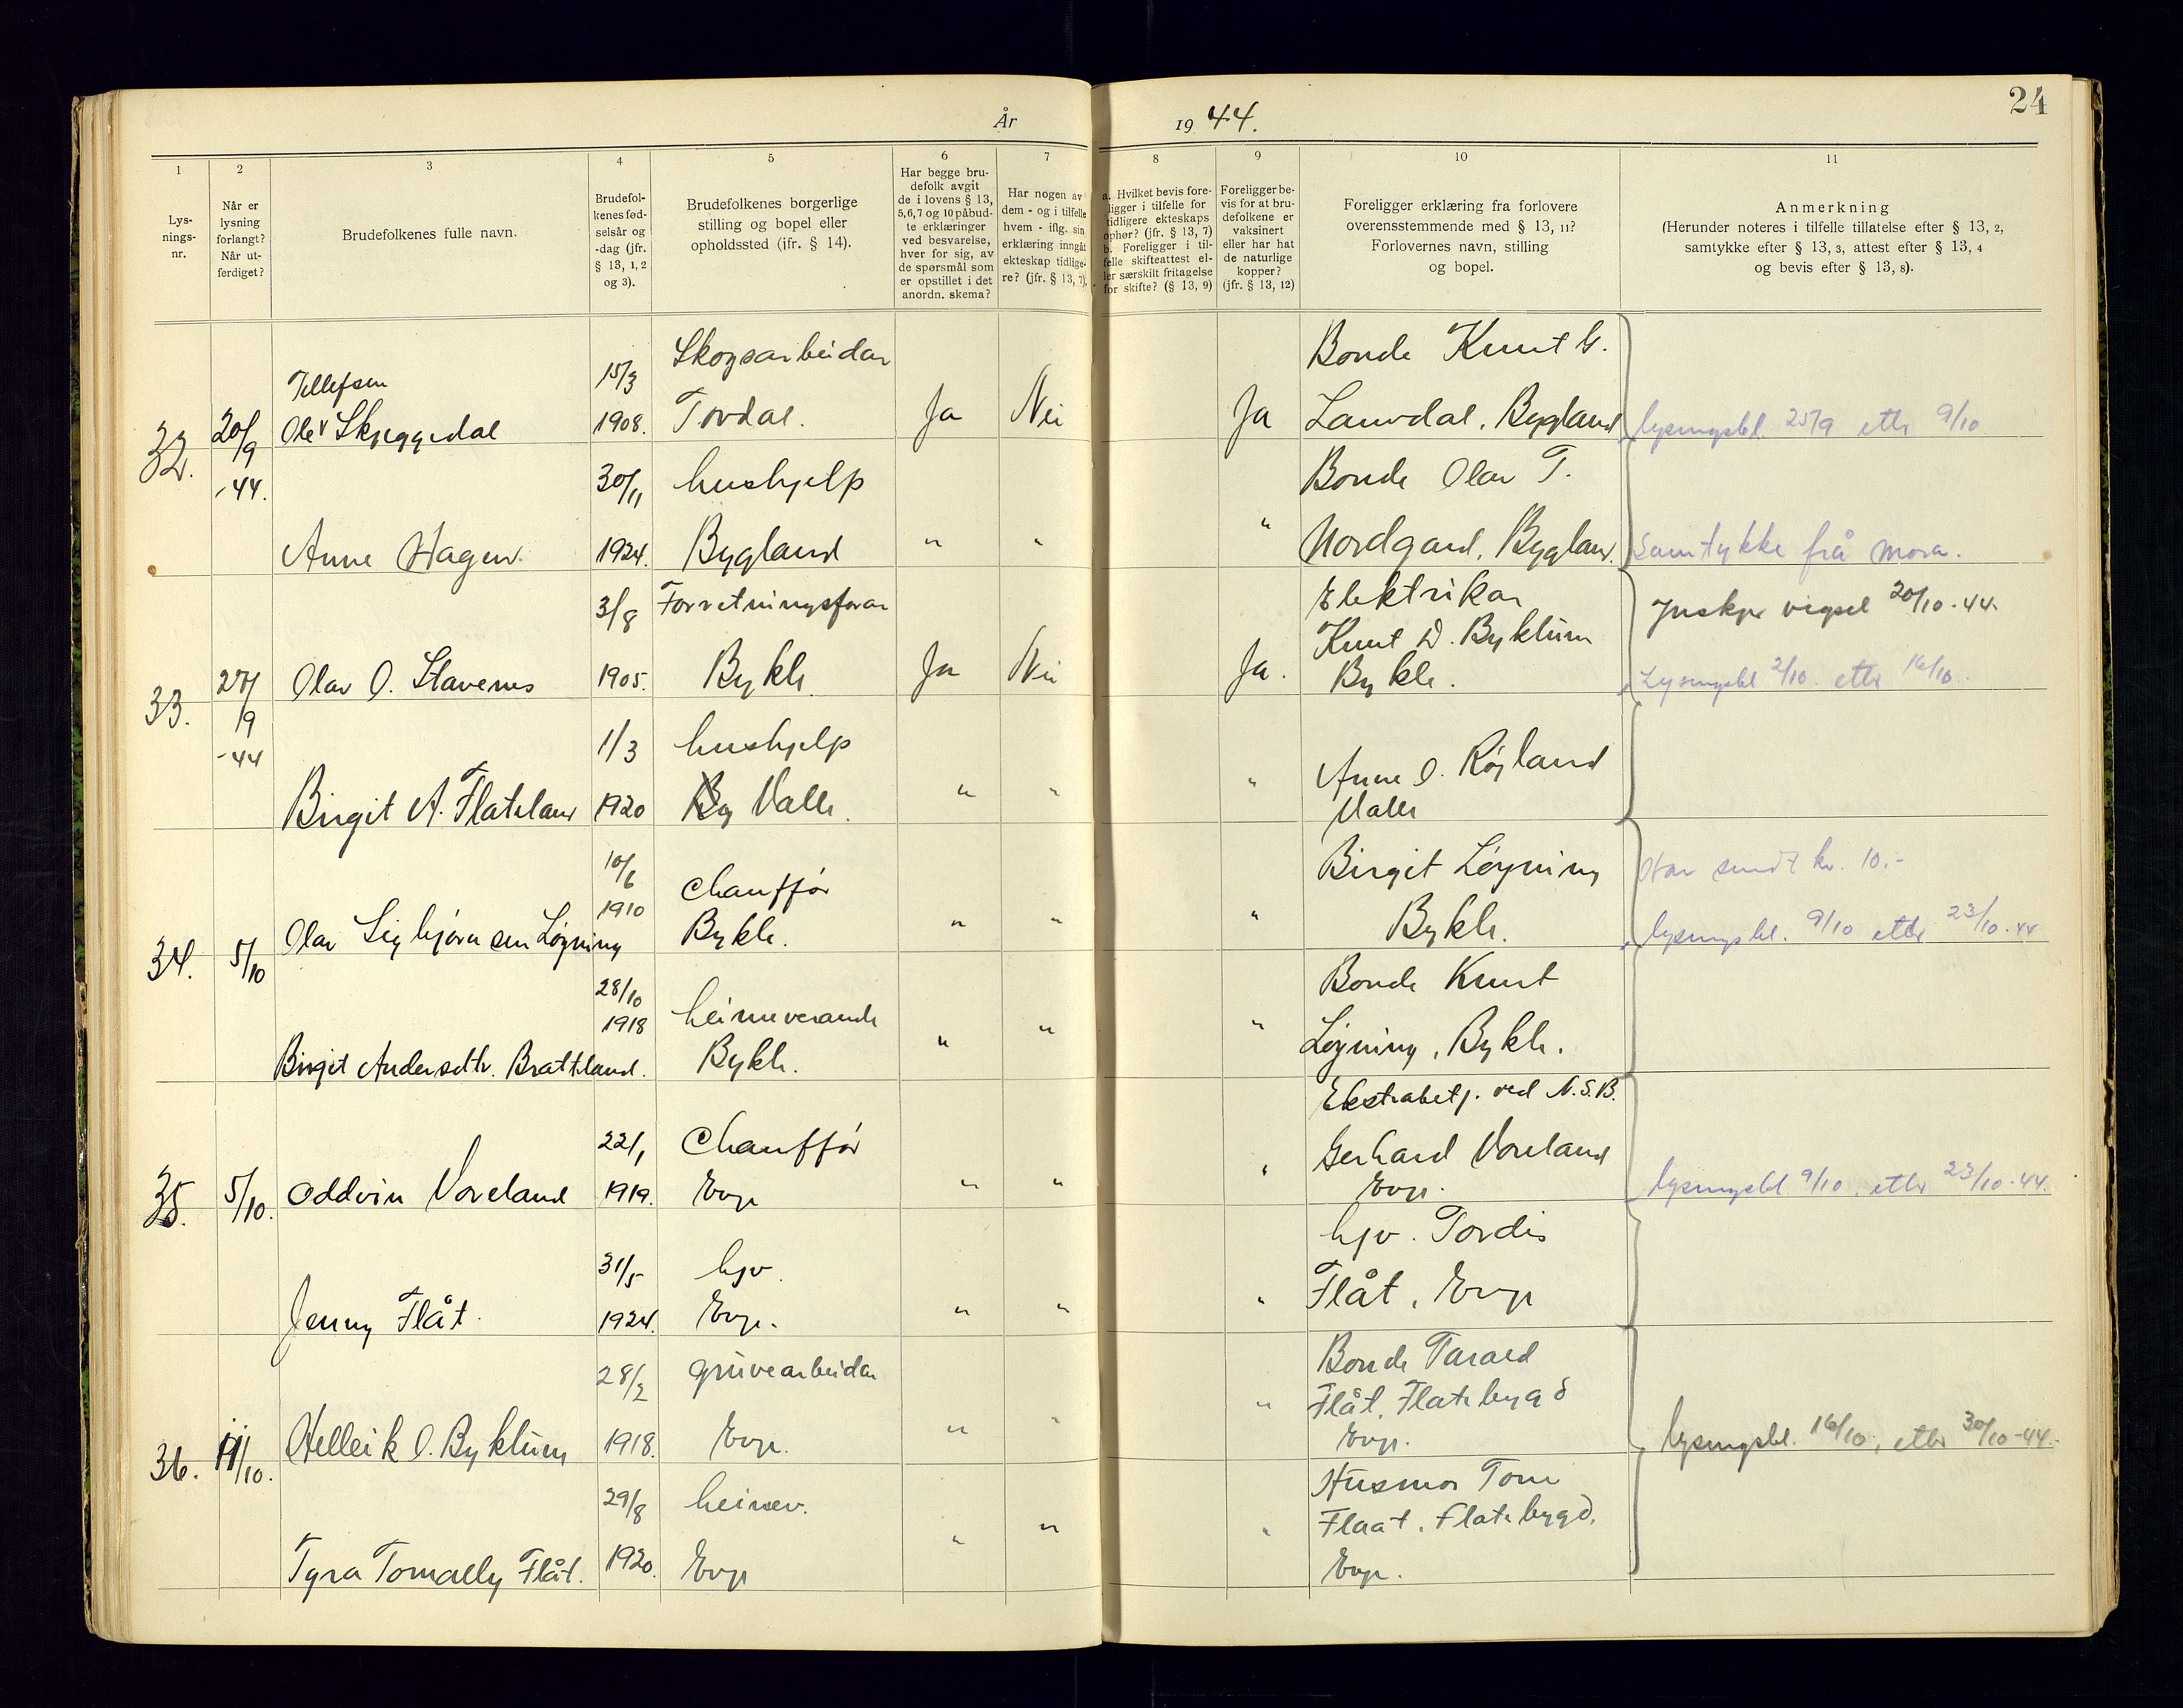 24
År 1944.
1 2 3 4 5 6 7 8 9 10 11
Lys-
nings-
nr.
Når er
lysning
forlangt?
Når ut-
ferdiget?
Brudefolkenes fulle navn.
Brudefol-
kenes fød-
selsår og
-dag (jfr.
§ 13, 1, 2
og 3).
Brudefolkenes borgerlige
stilling og bopel eller
opholdssted (jfr. § 14).
Har begge bru-
defolk avgit
de i lovens § 13,
5,6,7 og 10 påbud-
te erklæringer
ved besvarelse,
hver for sig, av
de spørsmål som
er opstillet i det
anordn. skema?
Har nogen av
dem - og i tilfelle
hvem - iflg. sin
erklæring inngått
ekteskap tidlige-
re? (jfr. § 13, 7).
a. Hvilket bevis fore-
ligger i tilfelle for
tidligere ekteskaps
ophør? (jfr. § 13, 7)
b. Foreligger i til-
felle skifteattest el-
ler særskilt fritagelse
for skifte? (§ 13, 9)
Foreligger be-
vis for at bru-
defolkene er
vaksinert
eller har hat
de naturlige
kopper?
(jfr. § 13, 12)
Foreligger erklæring fra forlovere
overensstemmende med § 13, 11?
Forlovernes navn, stilling
og bopel.
Anmerkning
(Herunder noteres i tilfelle tillatelse efter § 13, 2,
samtykke efter § 13, 3, attest efter § 13, 4
og bevis efter § 13, 8).
32.
20/9
-44.
Tellefsen
Olav Skjeggedal
15/3
1908.
Skogsarbeidar
Tovdal.
Ja
Nei
Ja
Bonde Knut G.
Lauvdal, Bygland
lysingsbl. 25/9 ettr 9/10
Anne Hagen.
30/11
1924.
hushjelp
Bygland
" " "
Bonde Olav T.
Nordgard, Bygland.
Samtykke frå mora.
33.
27/9
-44
Olav O. Stavenes
3/8
1905.
Forretningsførar
Bykle
Ja
Nei
Ja.
Elektrikar
Knut D. Byklum
Bykle.
Innskr. vigsel 20/10-44.
Lysingsbl 2/10. ettr 16/10.
Birgit A. Flateland
1/3
1920
hushjelp
By Valle.
" " "
Anne O. Røjland
Valle
34.
5/10
Olav Sigbjørnsen Løyning
10/6
1910
Chauffør
Bykle.
" " "
Birgit Løyning
Bykle.
Har sendt kr. 10.-
lysingsbl. 9/10 ettr 23/10-44
Birgit Andersdtr. Bratteland.
28/10
1918
heimeverande
Bykle.
" " "
Bonde Knut
Løyning, Bykle.
35.
5/10.
Oddvin Voreland
22/1
1919.
Chauffør
Evje
" " "
Ekstrabetj. ved N.S.B.
Gerhard Voreland
Evje.
lysingsbl 9/10, ettr 23/10-44.
Jenny Flåt.
31/5
1924.
hjv.
Evje.
" " "
hjv. Tordis
Flåt, Evje
36.
11/10.
Helleik O. Byklum
28/2
1918.
gruvearbeidar
Evje.
" " "
Bonde Tarald
Flåt, Flatebygd
Evje.
lysingsbl. 16/10, ettr 30/10-44.
Tyra Tomally Flåt.
29/8
1920.
heimev.
Evje
" " "
Husmor Tone
Flaat, Flatebygd,
Evje.